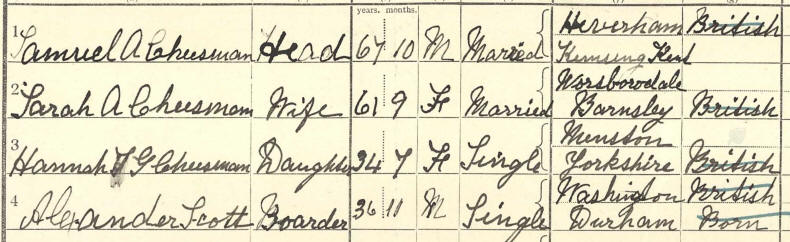 years. months.
Heverham British
1 Samuel A Cheesman Head 67 10 M Married
Kemsing Kent
Worsborodale
2 Sarah A Cheesman Wife 61 9 F Married Barnsley British
Menston
3 Hannah G Cheesman Daughter 34 7 F Single Yorkshire British
Washington British
4 Alexander Scott Boarder 36 11 M Single Durham Born